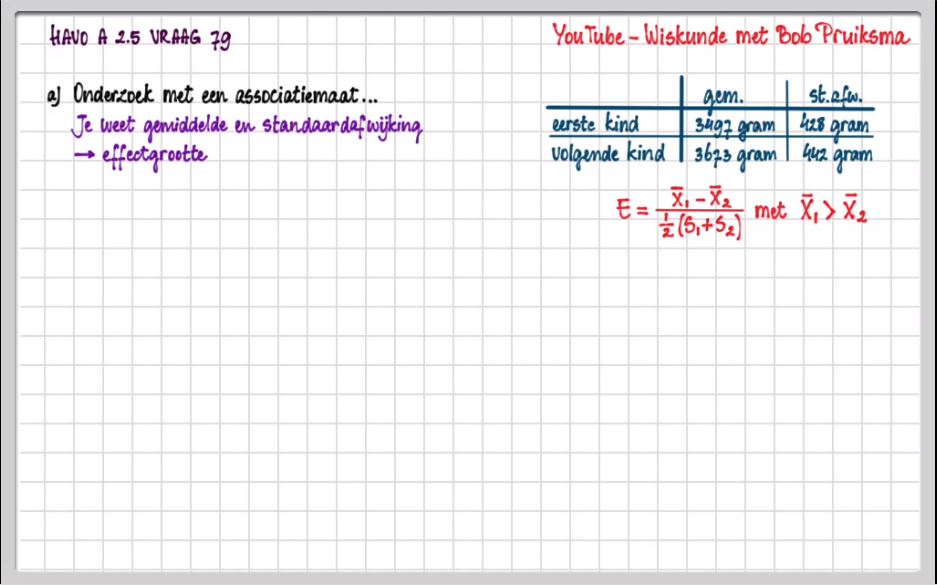 HAVO A 2.5 VRAAG 79
YouTube - Wiskunde met Bob Pruiksma
a) Onderzoek met een associatiemaat...
Je weet gemiddelde en standaardafwijking
→ effectgrootte
gem. st.afw.
eerste kind 3497 gram 428 gram
volgende kind 3673 gram 442 gram
E = (X̄₁ - X̄₂) / (½(S₁+S₂)) met X̄₁ > X̄₂